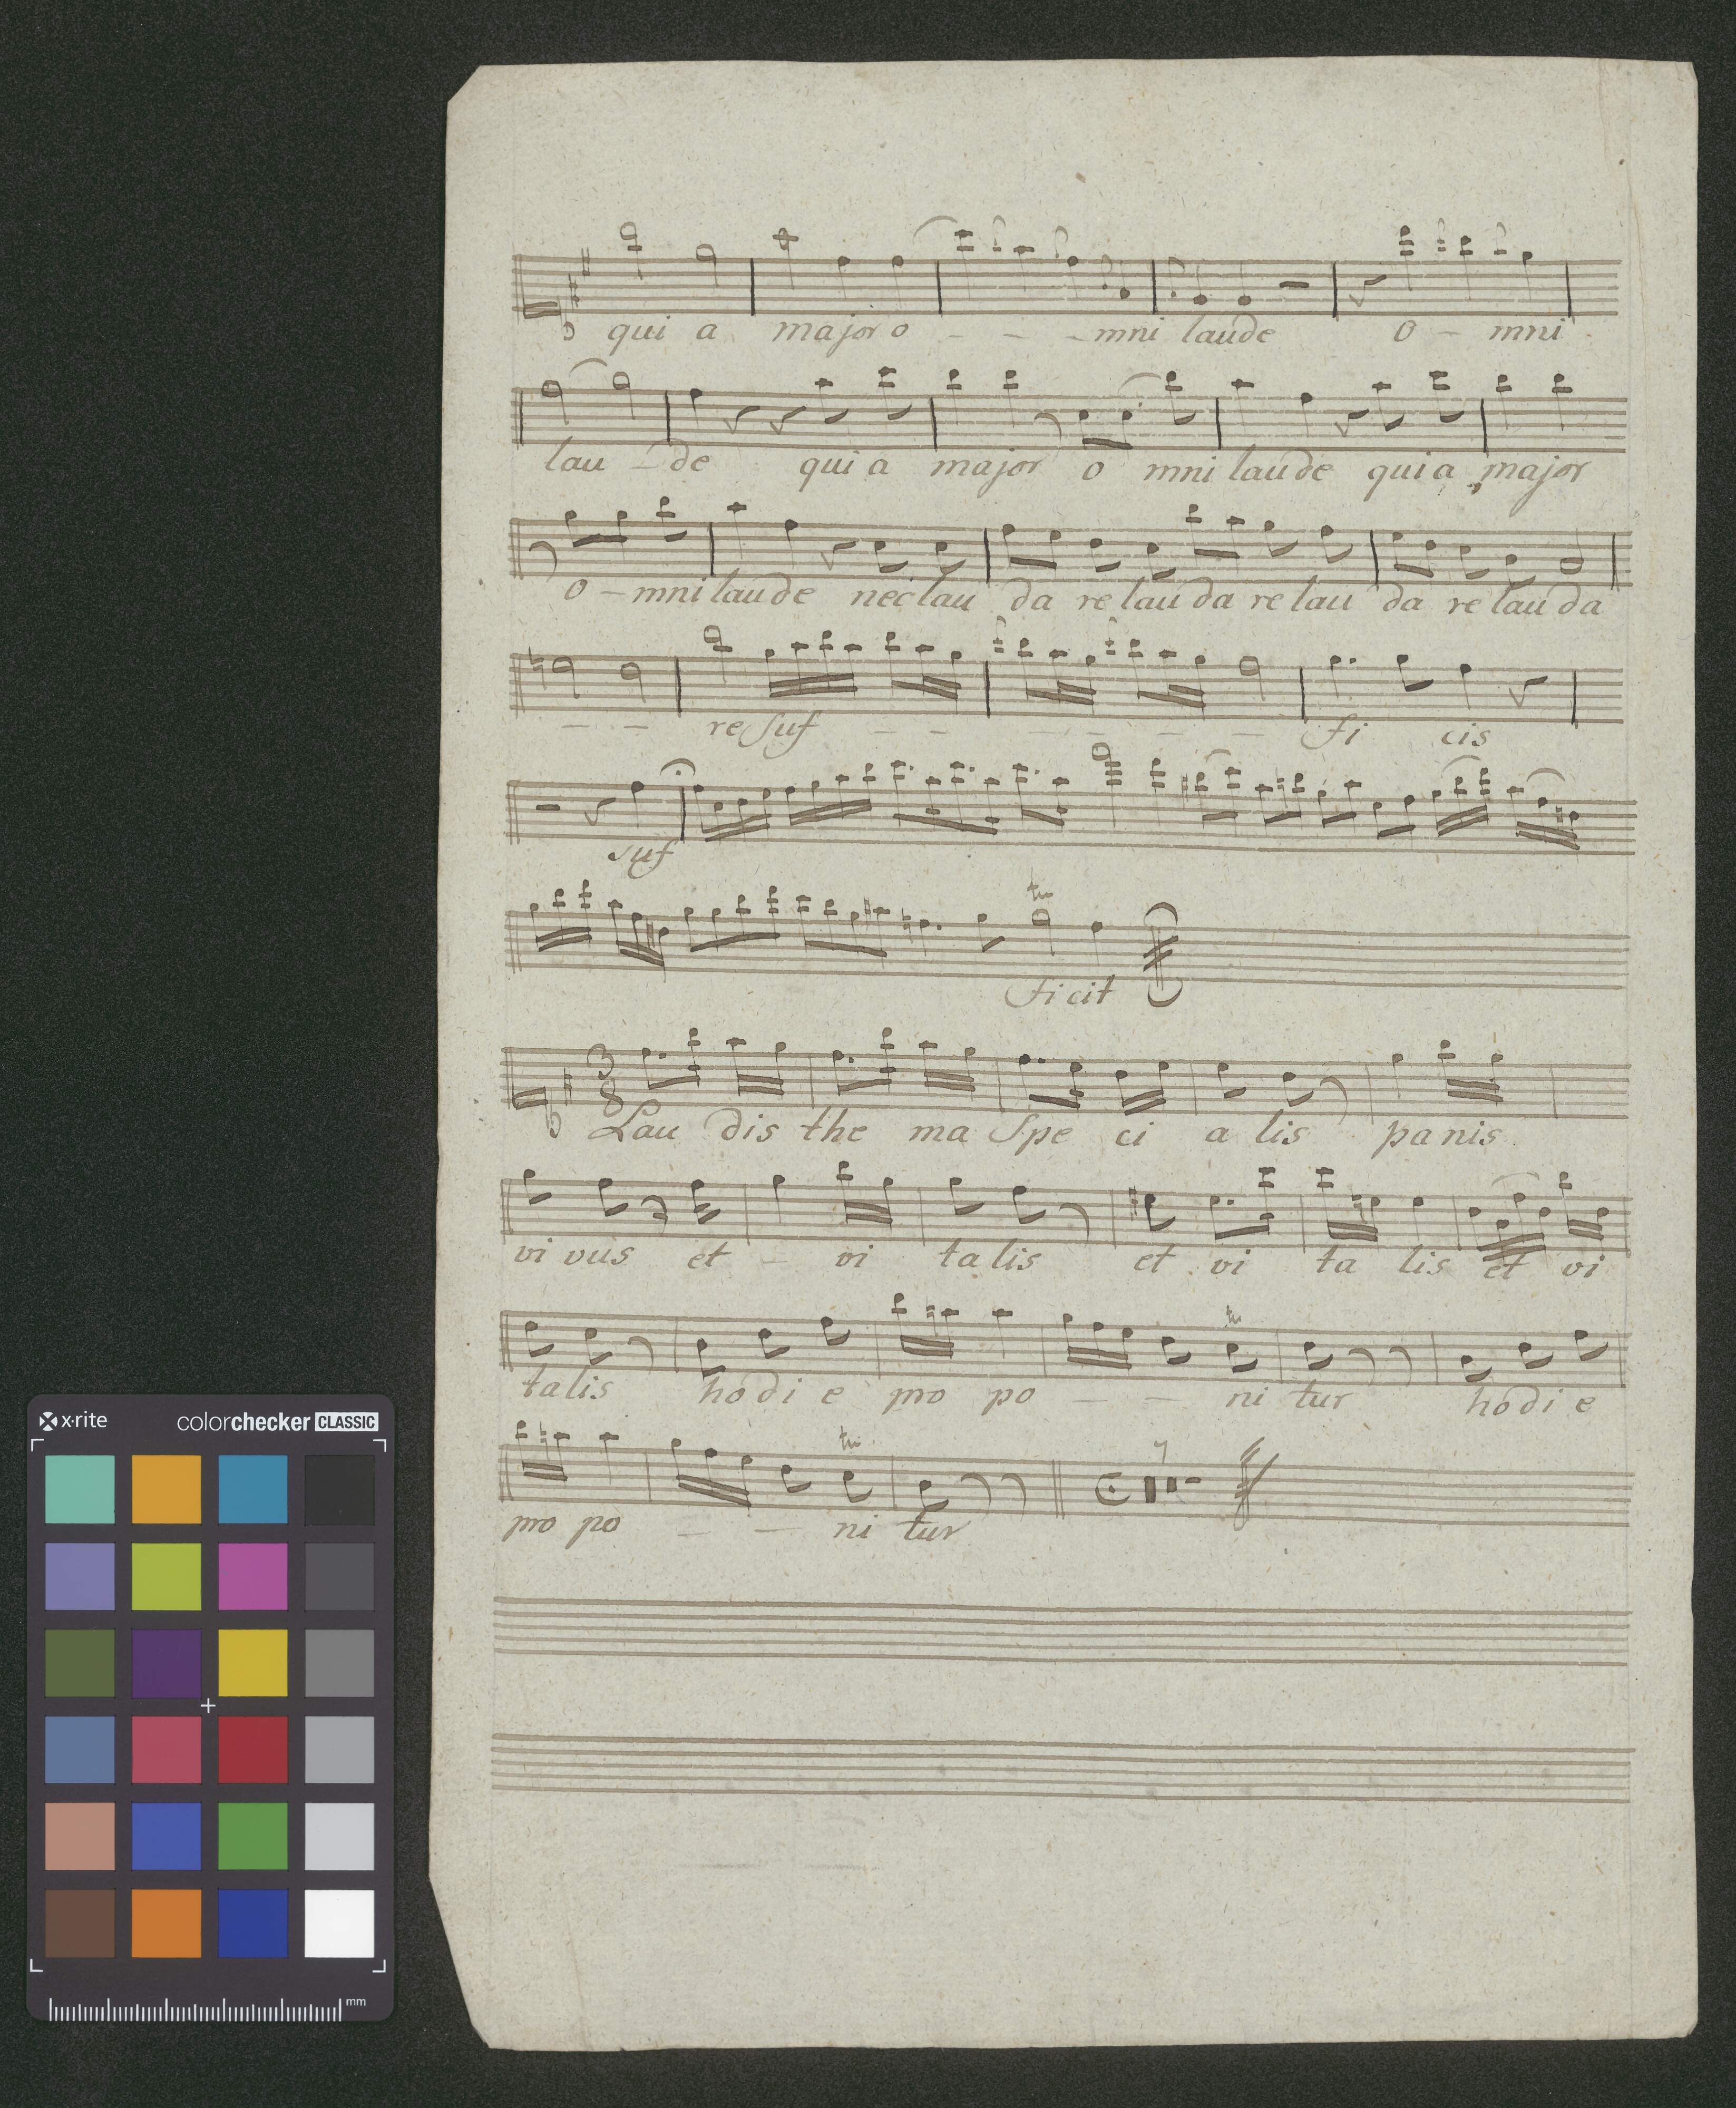 qui a major o - - - mni laude o - mni
lau - de qui a major o mni laude qui a major
o - mni laude nec lau da re lau da re lau da re lau da
- - re suf - - - - - - fi cis
suf
ficit
tr
3
8
Lau dis the ma Spe ci a lis panis
vi vus et - vi talis et vi ta lis et vi
talis hodi e pro po - - ni tur hodi e
tr
pro po - - ni tur
tr
7
x·rite colorchecker CLASSIC
mm